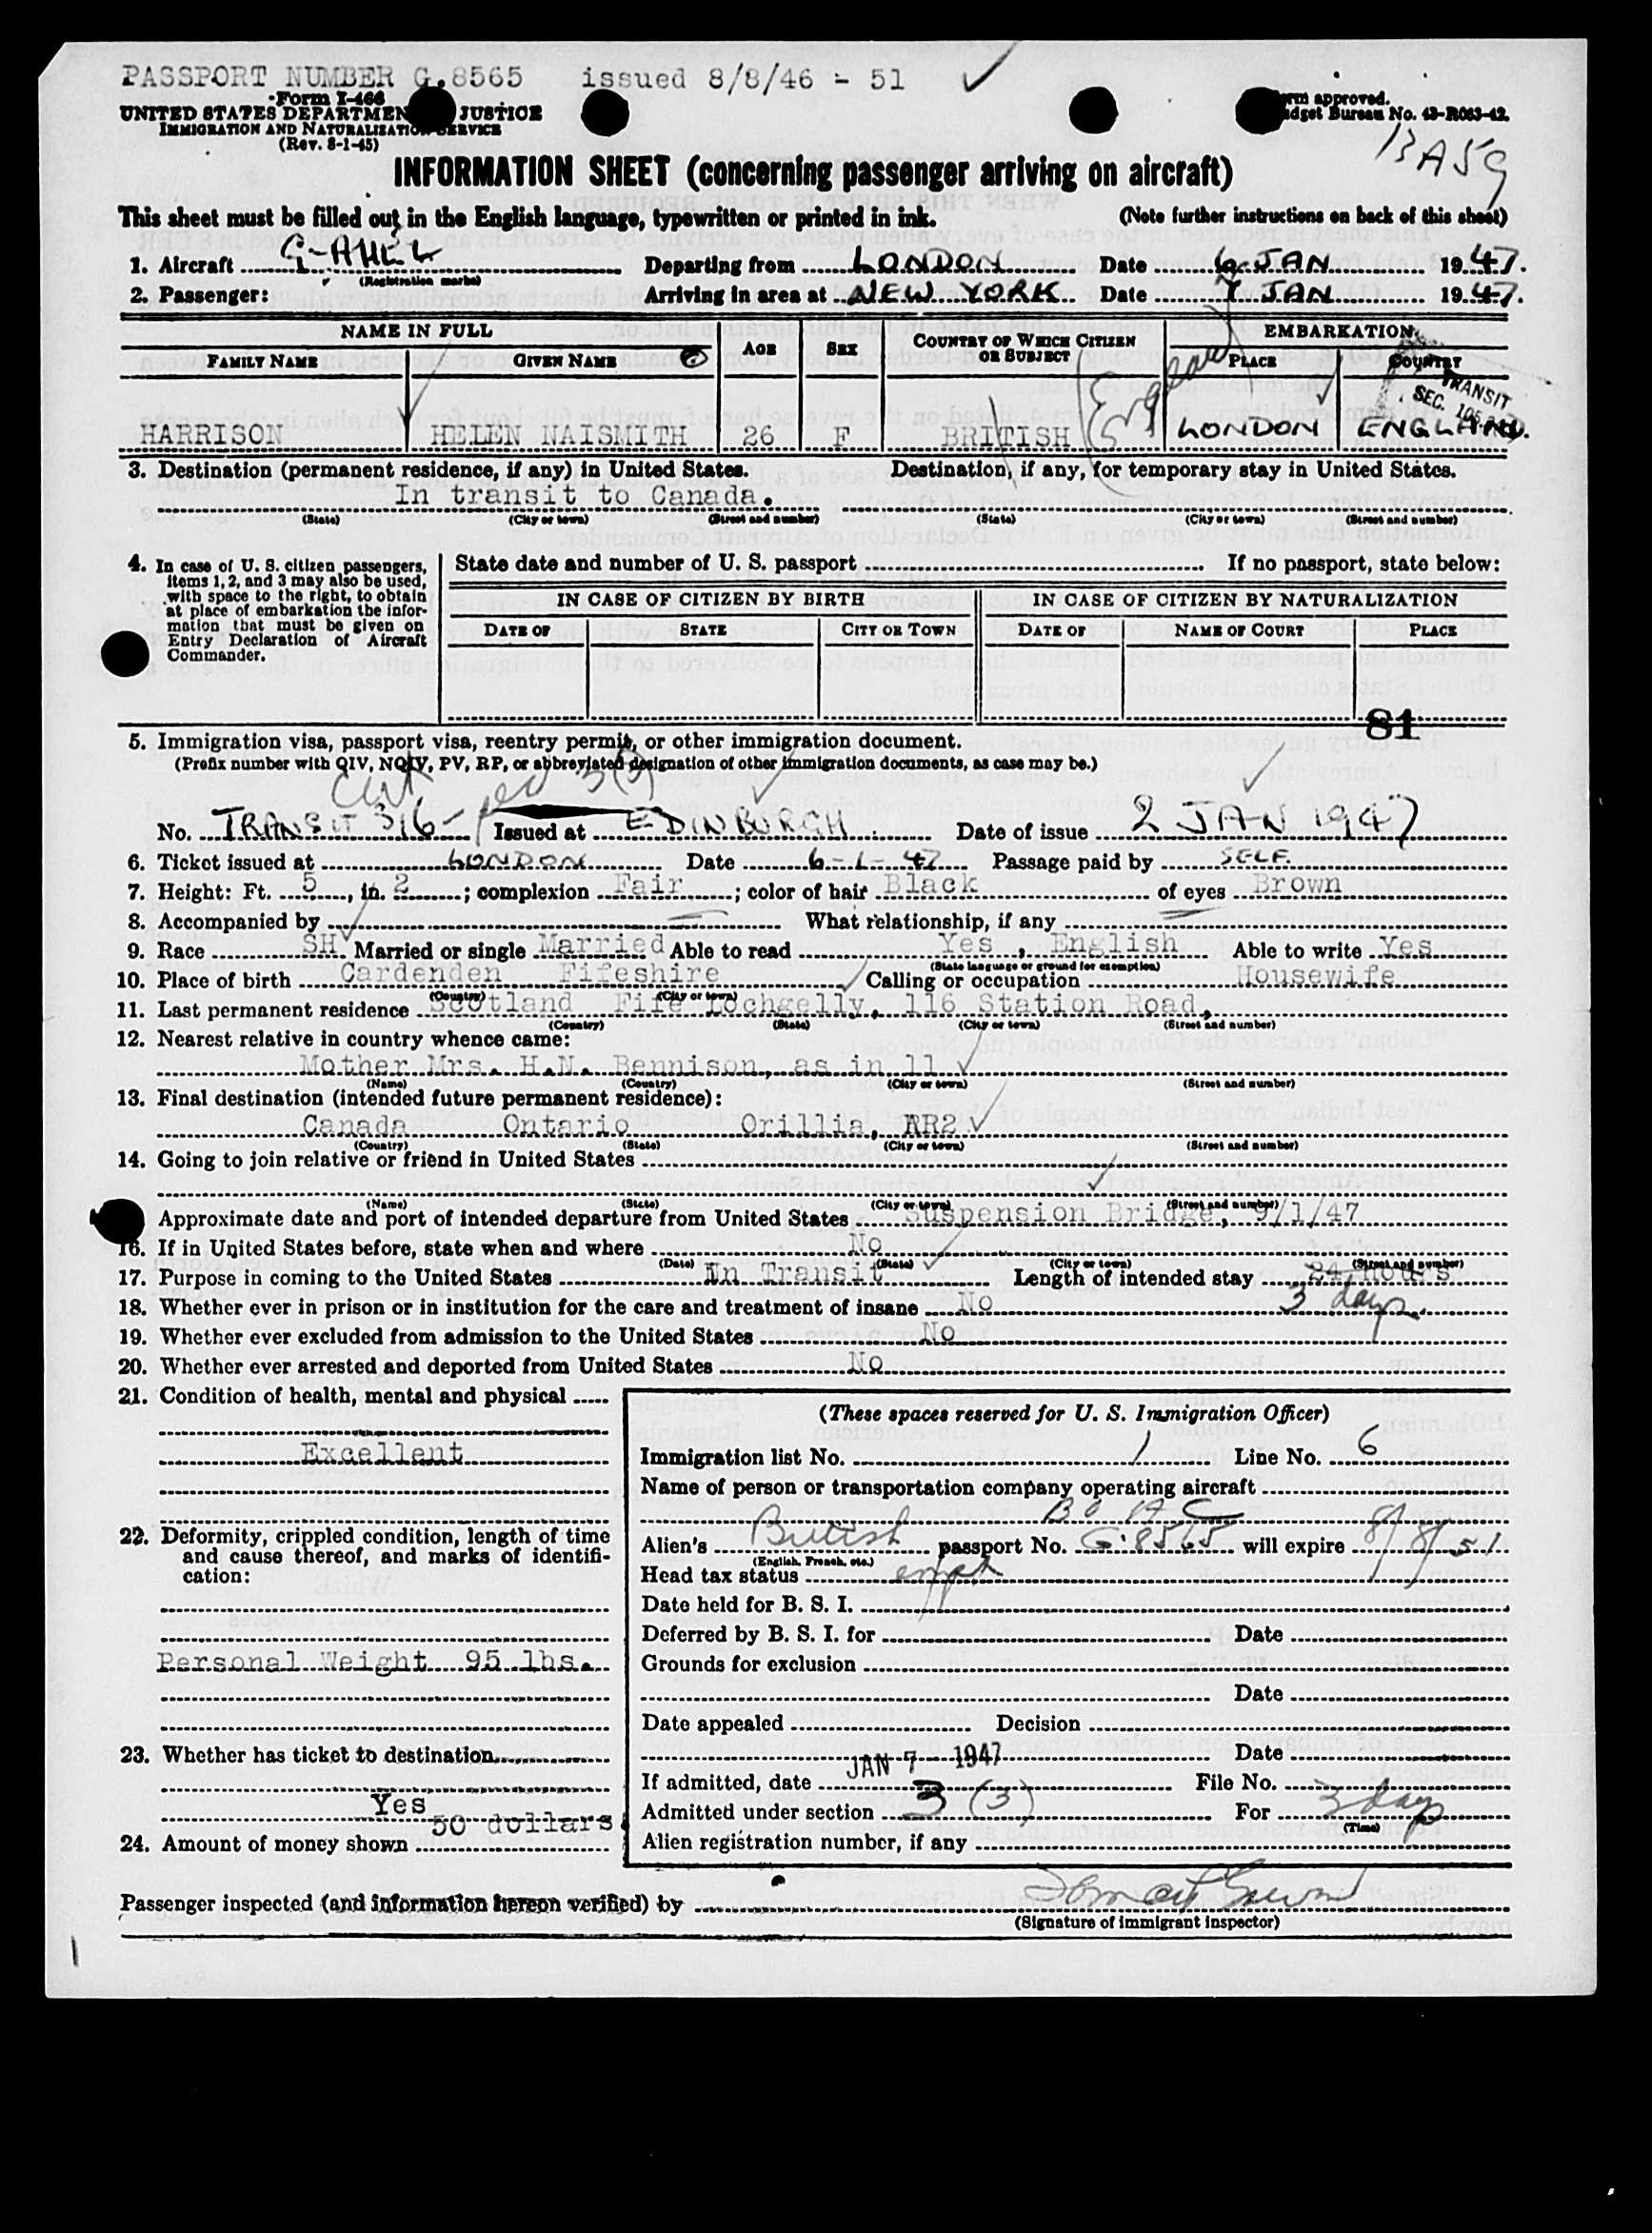 PASSPORT NUMBER G.8565 issued 8/8/46 - 51
Form I-466
UNITED STATES DEPARTMENT JUSTICE
IMMIGRATION AND NATURALIZATION SERVICE
(Rev. 8-1-45)
Form approved.
Budget Bureau No. 43-R063-42.
INFORMATION SHEET (concerning passenger arriving on aircraft)
This sheet must be filled out in the English language, typewritten or printed in ink. (Note further instructions on back of this sheet)
1. Aircraft G-AHEL Departing from LONDON Date 6 JAN 1947.
(Registration marks)
2. Passenger: Arriving in area at NEW YORK Date 7 JAN 1947.
NAME IN FULL AGE SEX COUNTRY OF WHICH CITIZEN OR SUBJECT EMBARKATION
FAMILY NAME GIVEN NAME PLACE COUNTRY
England
TRANSIT
SEC. 105.3
HARRISON HELEN NAISMITH 26 F BRITISH LONDON ENGLAND.
3. Destination (permanent residence, if any) in United States. Destination, if any, for temporary stay in United States.
In transit to Canada.
(State) (City or town) (Street and number) (State) (City or town) (Street and number)
4. In case of U. S. citizen passengers, items 1, 2, and 3 may also be used, with space to the right, to obtain at place of embarkation the information that must be given on Entry Declaration of Aircraft Commander.
State date and number of U. S. passport If no passport, state below:
IN CASE OF CITIZEN BY BIRTH IN CASE OF CITIZEN BY NATURALIZATION
DATE OF STATE CITY OR TOWN DATE OF NAME OF COURT PLACE
81
5. Immigration visa, passport visa, reentry permit, or other immigration document.
(Prefix number with QIV, NQIV, PV, RP, or abbreviated designation of other immigration documents, as case may be.)
3(3)
No. TRANSIT 316 Issued at EDINBURGH Date of issue 2 JAN 1947
6. Ticket issued at LONDON Date 6-1-47 Passage paid by SELF
7. Height: Ft. 5, in. 2; complexion Fair; color of hair Black of eyes Brown
8. Accompanied by What relationship, if any
9. Race SH Married or single Married Able to read Yes, English Able to write Yes
(State language or ground for exemption)
10. Place of birth Cardenden Fifeshire Calling or occupation Housewife
(Country) (City or town)
11. Last permanent residence Scotland Fife Lochgelly, 116 Station Road,
(Country) (State) (City or town) (Street and number)
12. Nearest relative in country whence came:
Mother Mrs. H.N. Bennison, as in 11
(Name) (Country) (City or town) (Street and number)
13. Final destination (intended future permanent residence):
Canada Ontario Orillia, RR2
(Country) (State) (City or town) (Street and number)
14. Going to join relative or friend in United States
(Name) (State) (City or town) (Street and number)
Approximate date and port of intended departure from United States Suspension Bridge, 9/1/47
16. If in United States before, state when and where No
(Date) (State) (City or town) (Street and number)
17. Purpose in coming to the United States In Transit Length of intended stay 24 hours
3 days.
18. Whether ever in prison or in institution for the care and treatment of insane No
19. Whether ever excluded from admission to the United States No
20. Whether ever arrested and deported from United States No
21. Condition of health, mental and physical
Excellent
22. Deformity, crippled condition, length of time and cause thereof, and marks of identification:
Personal Weight 95 lbs.
23. Whether has ticket to destination
Yes
50 dollars
24. Amount of money shown
(These spaces reserved for U. S. Immigration Officer)
Immigration list No. 1 Line No. 6
Name of person or transportation company operating aircraft
B O A C
Alien's British passport No. G.8565 will expire 8/8/51.
(English, French, etc.)
Head tax status
Date held for B. S. I.
Deferred by B. S. I. for Date
Grounds for exclusion
Date
Date appealed Decision
Date
If admitted, date JAN 7 - 1947 File No.
Admitted under section 3 (3) For 3 days
(Time)
Alien registration number, if any
Passenger inspected (and information hereon verified) by
(Signature of immigrant inspector)